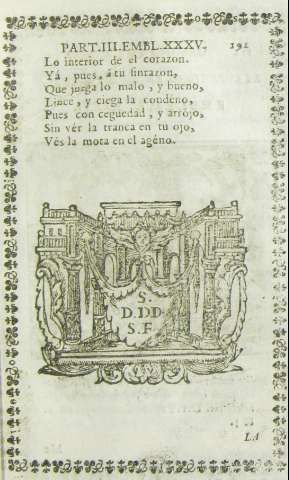 PART.III.EMBL.XXXV. 191
Lo interior de el corazon.
Yá, pues, á tu sinrazon,
Que juzga lo malo, y bueno,
Lince, y ciega la condeno,
Pues con ceguedad, y arrójo,
Sin vér la tranca en tu ojo,
Vés la mota en el agéno.
S.
D.DD.
S. F.
LA